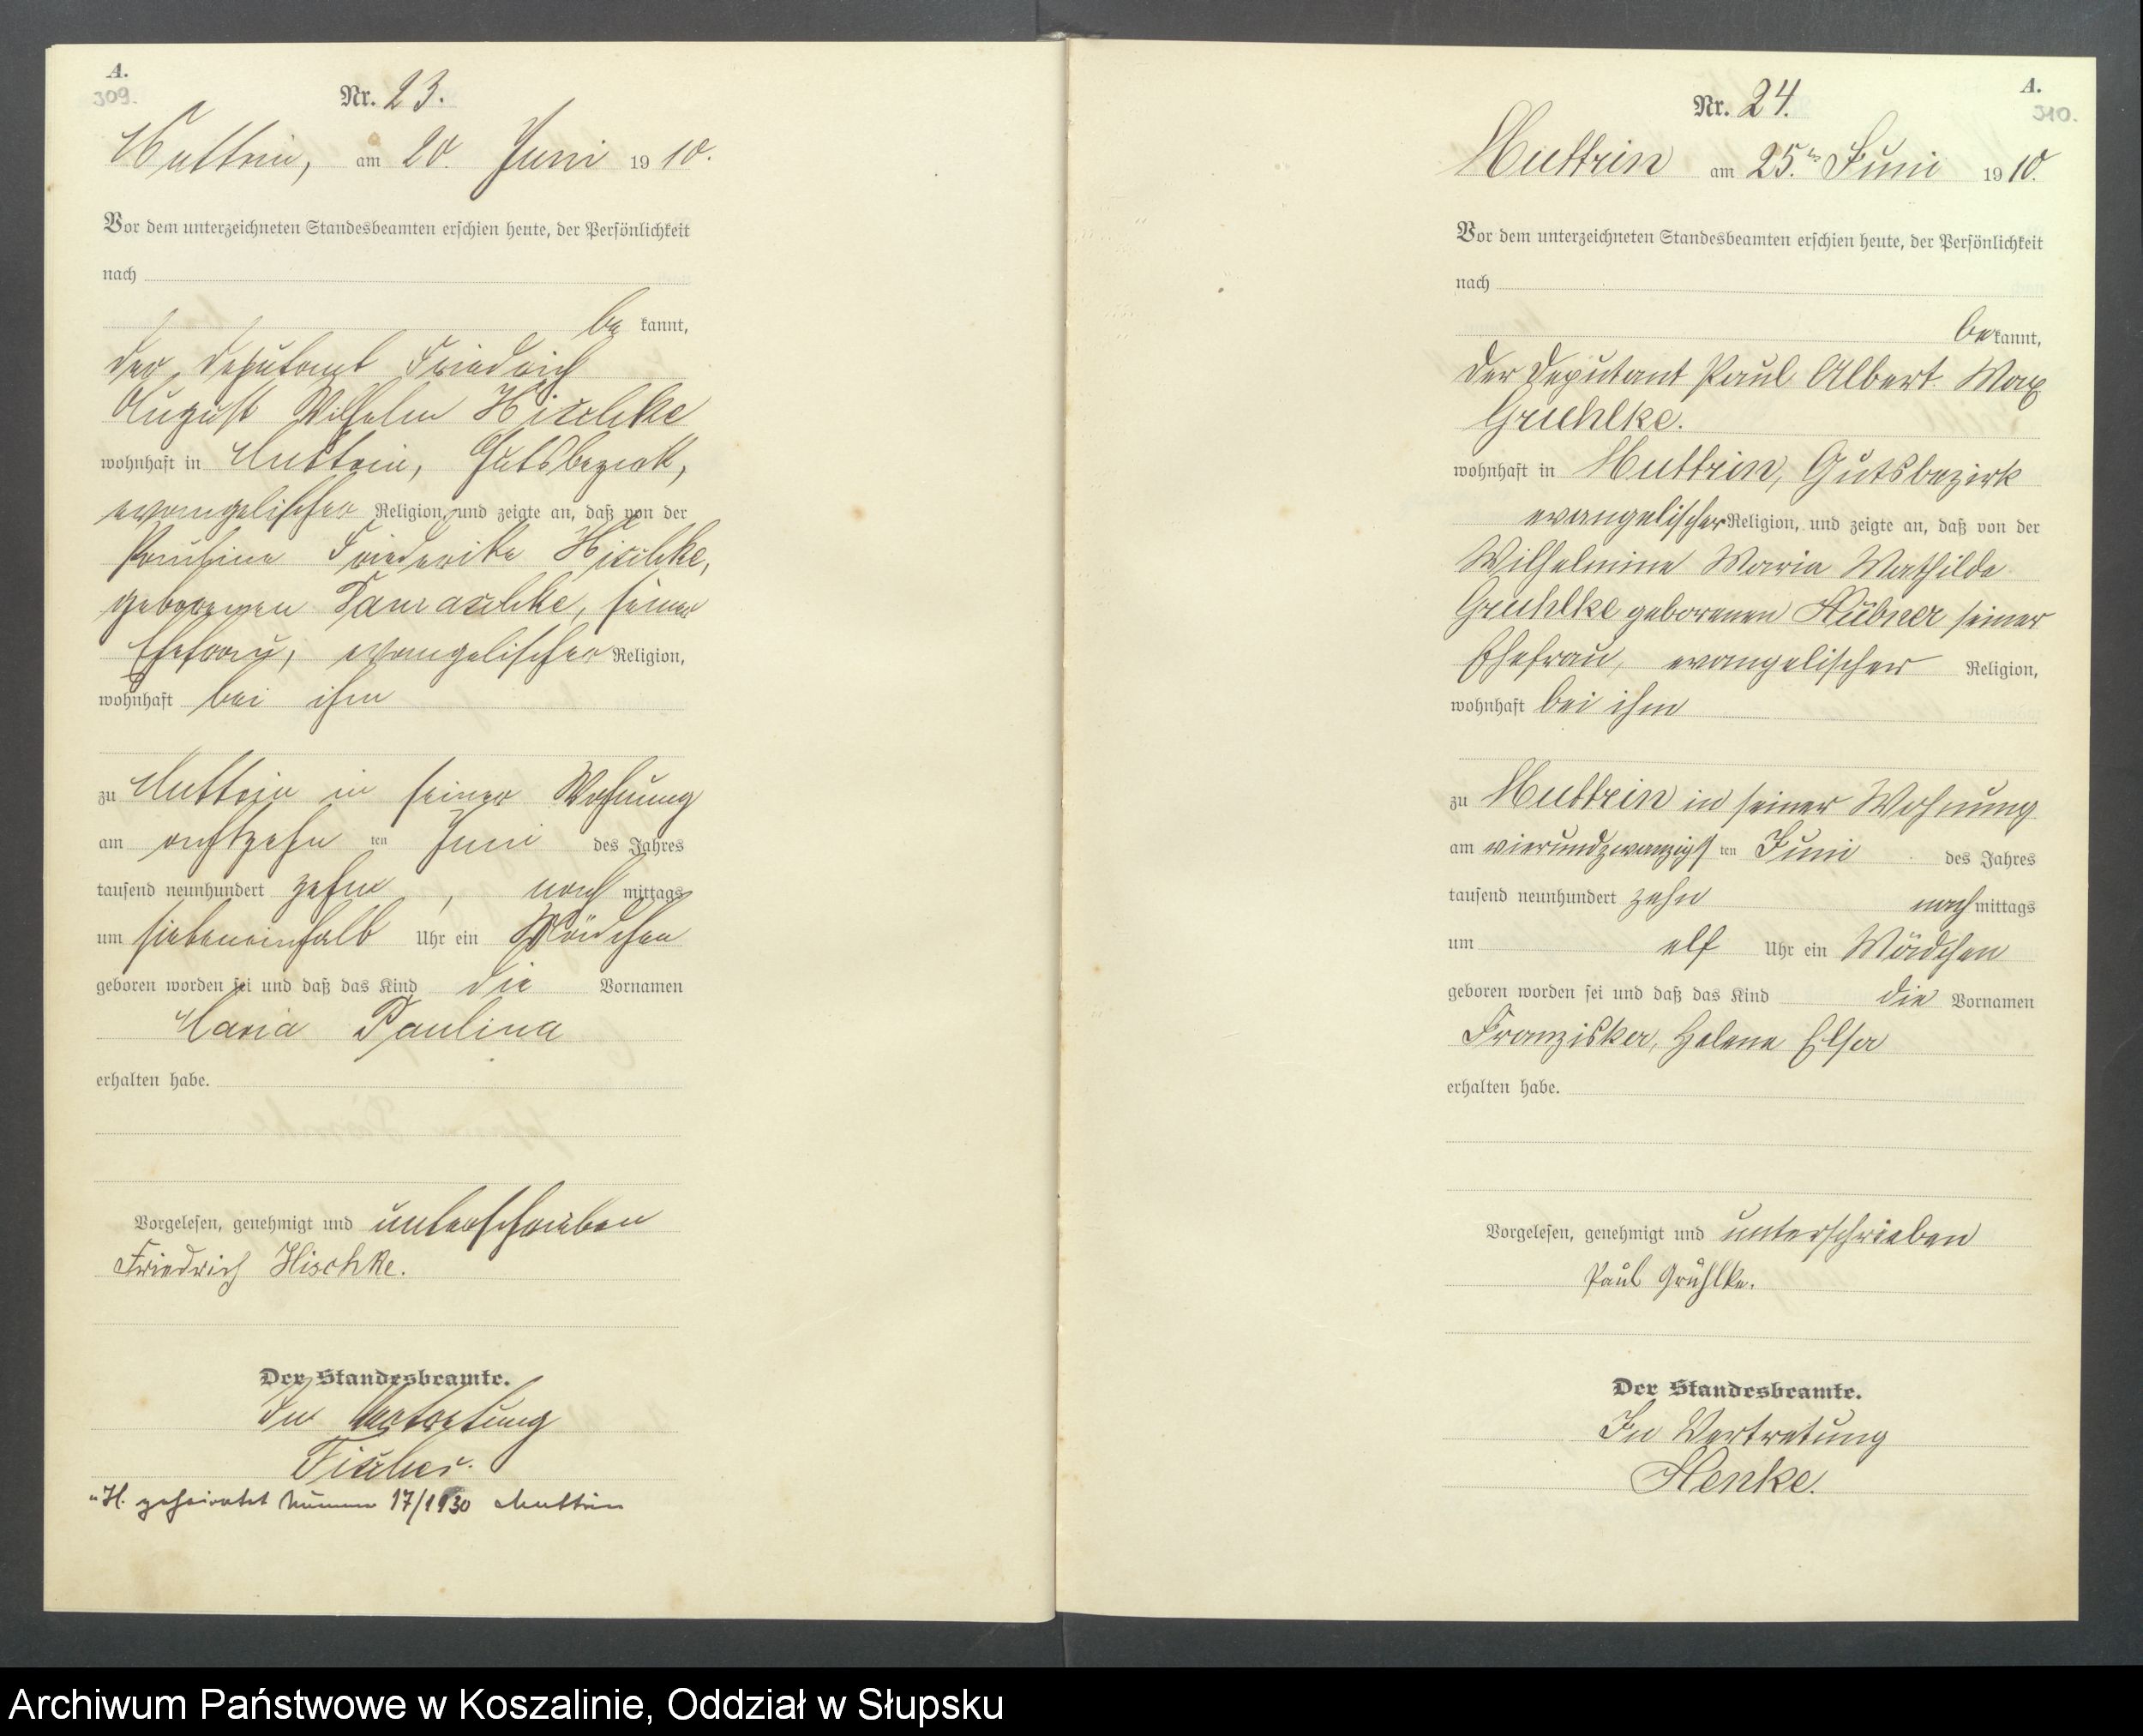 A.
309.
Nr. 23.
Muttrin, am 20. Juni 1910.
Vor dem unterzeichneten Standesbeamten erschien heute, der Persönlichkeit
nach
be kannt,
der Deputant Friedrich
August Wilhelm Hischke
wohnhaft in Muttrin, Gutsbezirk,
evangelischer Religion, und zeigte an, daß von der
Pauline Friederike Hischke,
geborenen Damaschke, seiner
Ehefrau, evangelischer Religion,
wohnhaft bei ihm
zu Muttrin in seiner Wohnung
am achtzehn ten Juni des Jahres
tausend neunhundert zehn, nach mittags
um siebeneinhalb Uhr ein Mädchen
geboren worden sei und daß das Kind die Vornamen
Maria Paulina
erhalten habe.
Vorgelesen, genehmigt und unterschrieben
Friedrich Hischke.
Der Standesbeamte.
In Vertretung
Fischer.
"H. geheiratet Nummer 17/1930 Muttrin
A.
310.
Nr. 24.
Muttrin am 25.ten Juni 1910.
Vor dem unterzeichneten Standesbeamten erschien heute, der Persönlichkeit
nach
be kannt,
der Deputant Paul Albert Max
Gruhlke.
wohnhaft in Muttrin, Gutsbezirk
evangelischer Religion, und zeigte an, daß von der
Wilhelmine Maria Mathilde
Gruhlke geborenen Hübner seiner
Ehefrau, evangelischer Religion,
wohnhaft bei ihm
zu Muttrin in seiner Wohnung
am vierundzwanzigsten Juni des Jahres
tausend neunhundert zehn nach mittags
um elf Uhr ein Mädchen
geboren worden sei und daß das Kind die Vornamen
Franziska, Helene Elsa
erhalten habe.
Vorgelesen, genehmigt und unterschrieben
Paul Gruhlke.
Der Standesbeamte.
In Vertretung
Henke.
Archiwum Państwowe w Koszalinie, Oddział w Słupsku